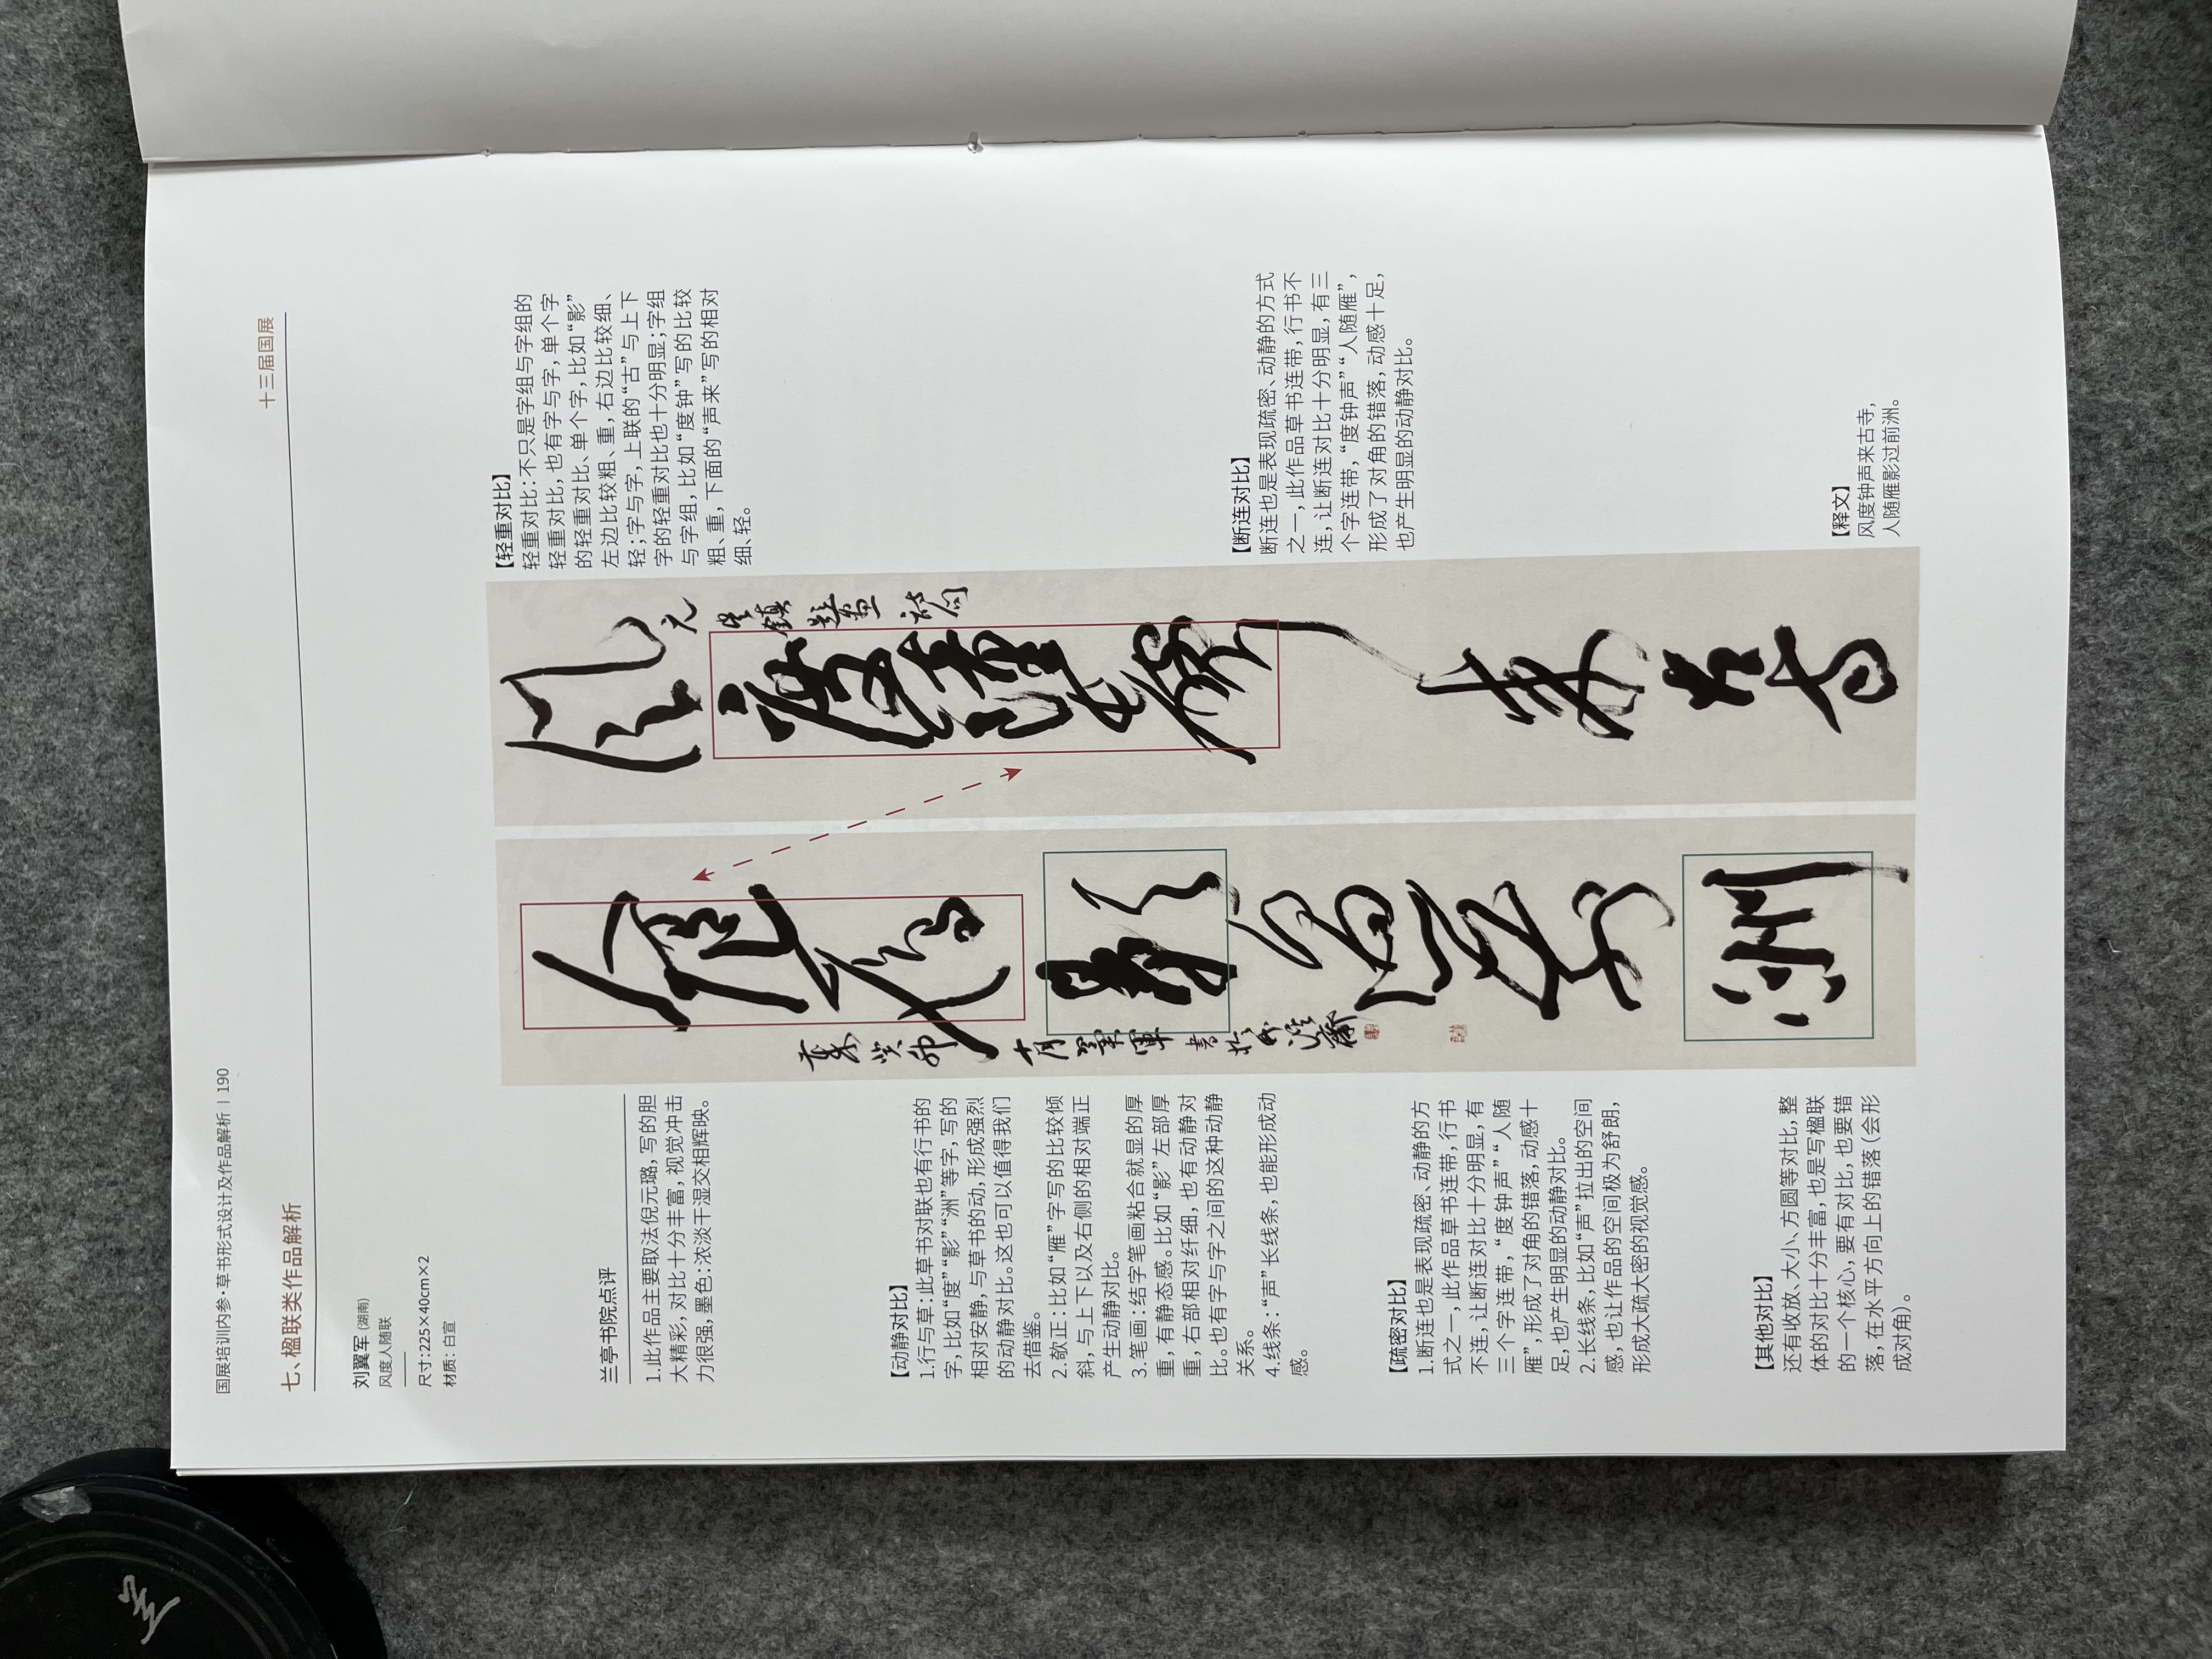 国展培训内参·草书形式设计及作品解析 | 190
十三届国展
七、楹联类作品解析
刘翼军（湖南）
风度人随联
尺寸：225×40cm×2
材质：白宣
兰亭书院点评
1.此作品主要取法倪元璐，写的胆
大精彩，对比十分丰富，视觉冲击
力很强，墨色：浓淡干湿交相辉映。
【动静对比】
1.行与草：此草书对联也有行书的
字，比如“度”“影”“洲”等字，写的
相对安静，与草书的动，形成强烈
的动静对比。这也可以值得我们
去借鉴。
2.欹正：比如“雁”字写的比较倾
斜，与上下以及右侧的相对端正
产生动静对比。
3.笔画：结字笔画粘合就显的厚
重，有静态感。比如“影”左部厚
重，右部相对纤细，也有动静对
比。也有字与字之间的这种动静
关系。
4.线条：“声”长线条，也能形成动
感。
【疏密对比】
1.断连也是表现疏密、动静的方
式之一，此作品草书连带，行书
不连，让断连对比十分明显，有
三个字连带，“度钟声”“人随
雁”，形成了对角的错落，动感十
足，也产生明显的动静对比。
2.长线条，比如“声”拉出的空间
感，也让作品的空间极为舒朗，
形成大疏大密的视觉感。
【其他对比】
还有收放、大小、方圆等对比，整
体的对比十分丰富，也是写楹联
的一个核心，要有对比，也要错
落，在水平方向上的错落（会形
成对角）。
風度鐘聲来古寺
元吴鎮題畫詩句
人随雁影過前洲
岁末癸卯
十月翼軍
書於
【轻重对比】
轻重对比：不只是字组与字组的
轻重对比，也有字与字，单个字
的轻重对比、单个字，比如“影”
左边比较粗、重，右边比较细、
轻；字与字，上联的“古”与上下
字的轻重对比也十分明显；字组
与字组，比如“度钟”写的比较
粗、重，下面的“声来”写的相对
细、轻。
【断连对比】
断连也是表现疏密、动静的方式
之一，此作品草书连带，行书不
连，让断连对比十分明显，有三
个字连带，“度钟声”“人随雁”，
形成了对角的错落，动感十足，
也产生明显的动静对比。
【释文】
风度钟声来古寺，
人随雁影过前洲。